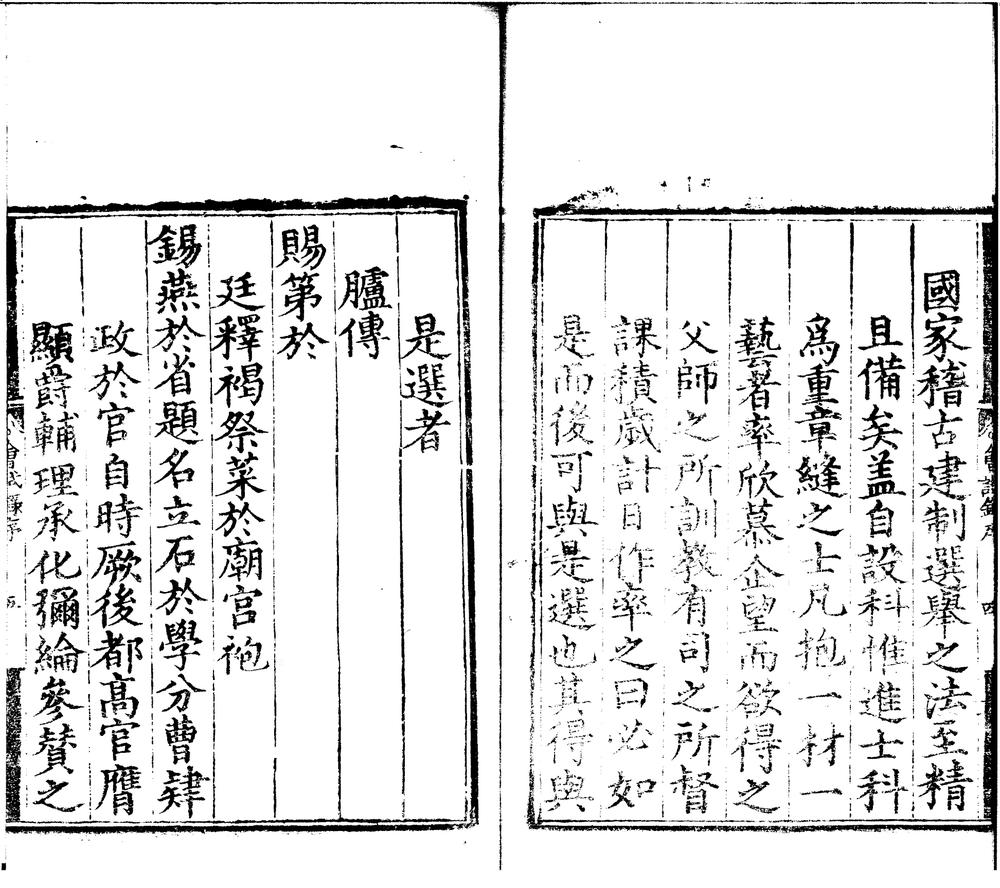 國家稽古建制選舉之法至精
且備矣盖自設科惟進士科
爲重章縫之士凡抱一材一
藝者率欣慕企望而欲得之
父師之所訓教有司之所督
課積歲計日作率之曰必如
是而後可與是選也其得與
是選者
臚傳
賜第於
廷釋褐祭菜於廟官袍
錫燕於省題名立石於學分曹肄
政於官自時厥後都高官膺
顯爵輔理承化彌綸參贊之